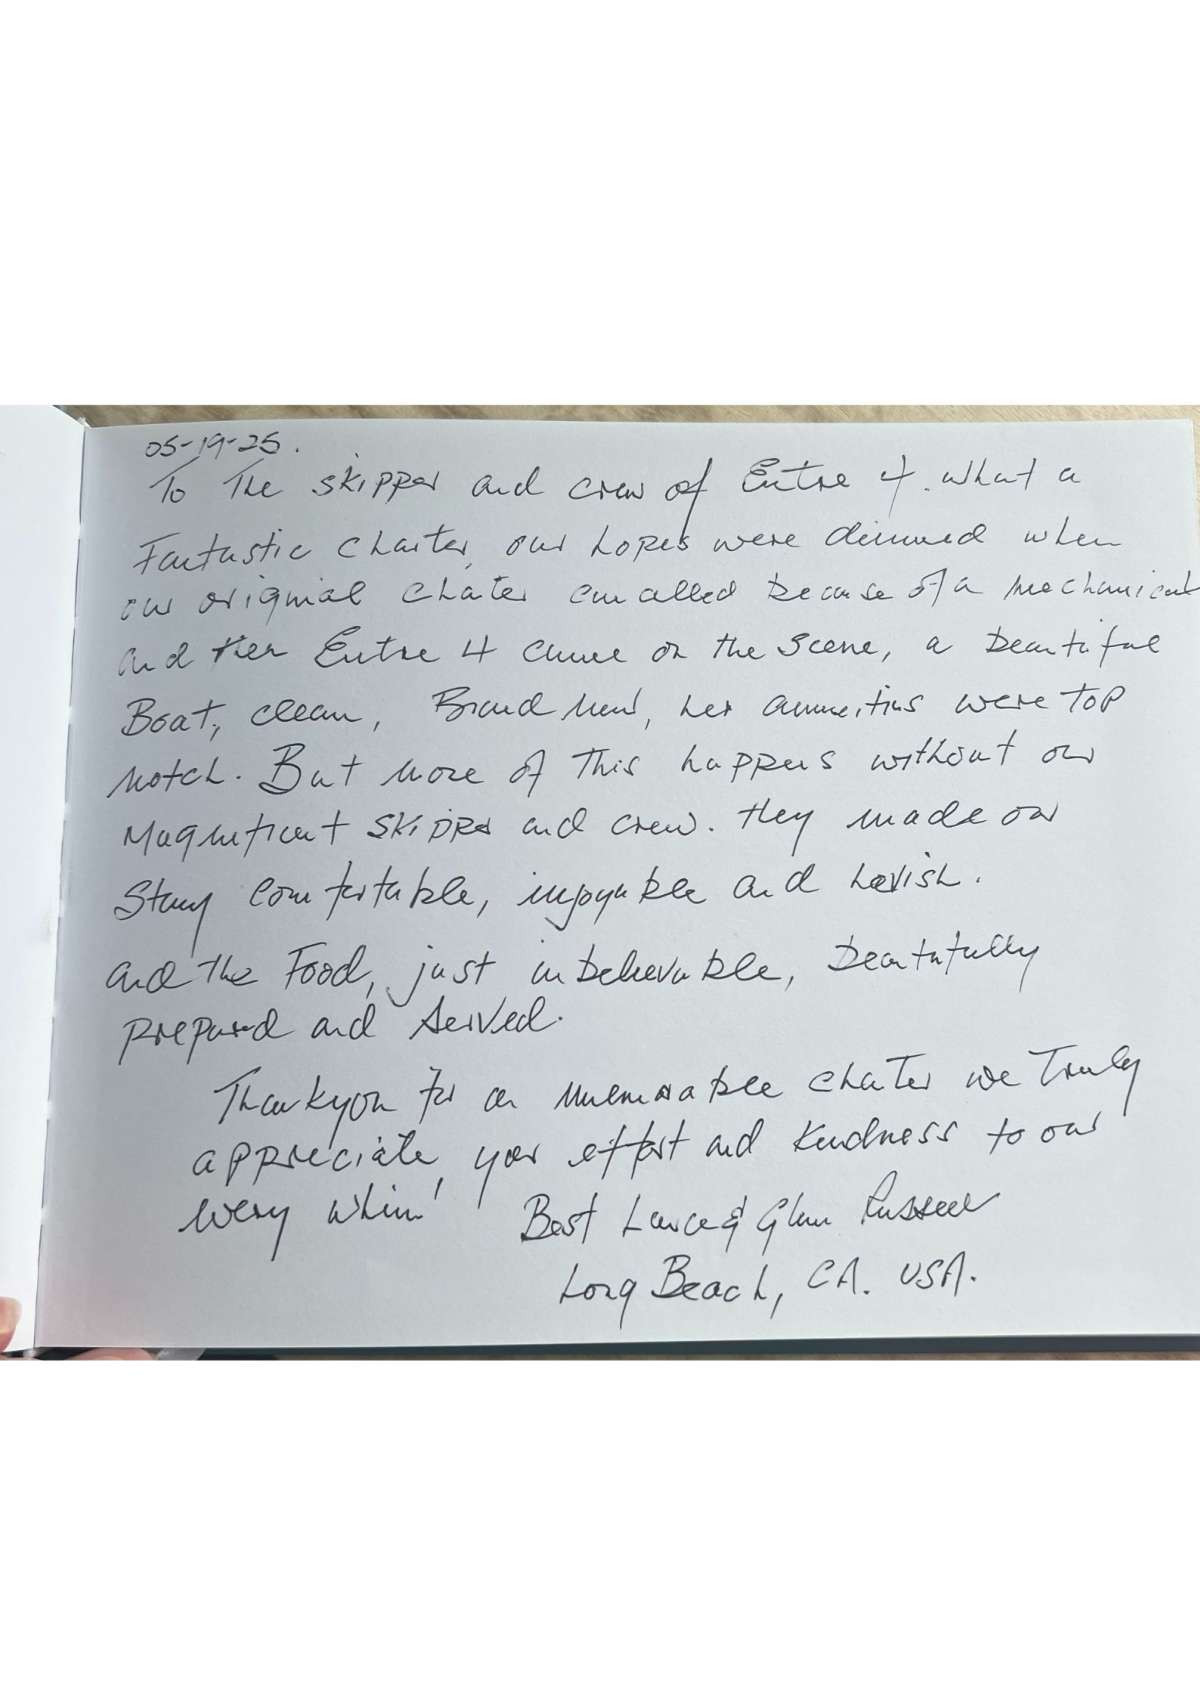 05-19-25.
To The skipper and crew of Entre 4. what a
Fantastic charter, our hopes were dimmed when
our original chater cancelled because of a mechanical
and then Entre 4 came on the scene, a beautiful
Boat, clean, Brand new, her ammeities were top
notch. But none of this happens without our
Magnificant skipper and crew. they made our
Stay comfortable, injoyable and lavish.
and the Food, just unbelievable, beautifully
prepared and served.
Thankyou for an memorable chater we Truly
appreciate your effort and kindness to our
every whim!
Best Lance & Glen Russell
Long Beach, CA. USA.